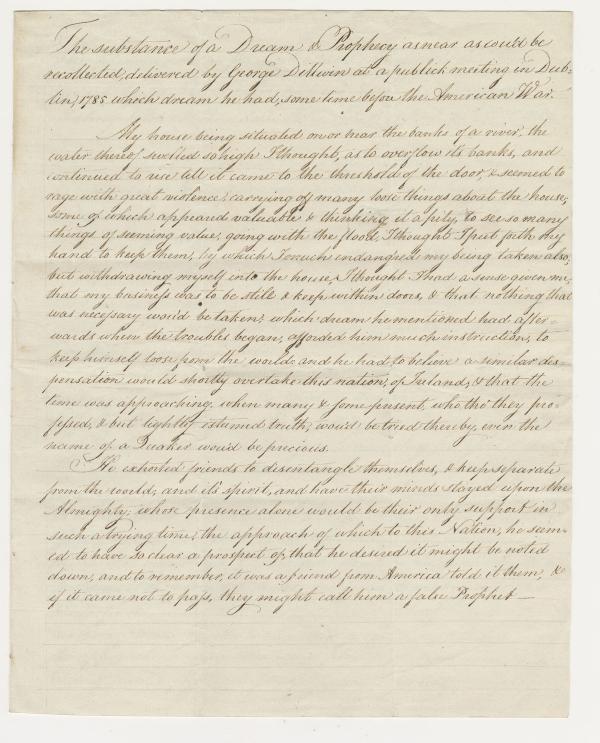 The substance of a Dream & Prophecy as near as could be
recollected, delivered by George Dillwin at a publick meeting in Dub-
lin, 1785 which dream he had, some time before the American War.
My house being situated on or near the banks of a river, the
water thereof swelled so high I thought, as to overflow its banks, and
continued to rise till it came to the threshold of the door, & seemed to
rage with great violence, carrying off many loose things about the house,
some of which appeared valuable & thinking it a pity, to see so many
things of seeming value, going with the flood, I thought I put forth my
hand to keep them, by which I much endangered my being taken also;
but withdrawing myself into the house, I thought I had a sense given me,
that my business was to be still & keep within doors, & that nothing that
was necessary would be taken; which dream he mentioned had after-
wards when the troubles began, afforded him much instruction, to
keep himself loose from the world; and he had to believe a similar dis-
pensation would shortly overtake this nation, of Ireland, & that the
time was approaching, when many & some present, who tho' they pro-
fessed, & but lightly esteemed truth, would be tried thereby, even the
name of a Quaker would be precious.
He exhorted friends to disentangle themselves, & keep separate
from the world, and it's spirit, and have their minds stayed upon the
Almighty; whose presence alone would be their only support in
such a trying time; the approach of which to this Nation, he seem-
ed to have so clear a prospect of, that he desired it might be noted
down, and to remember, it was a friend from America told it them, &
if it came not to pass, they might call him a false Prophet—